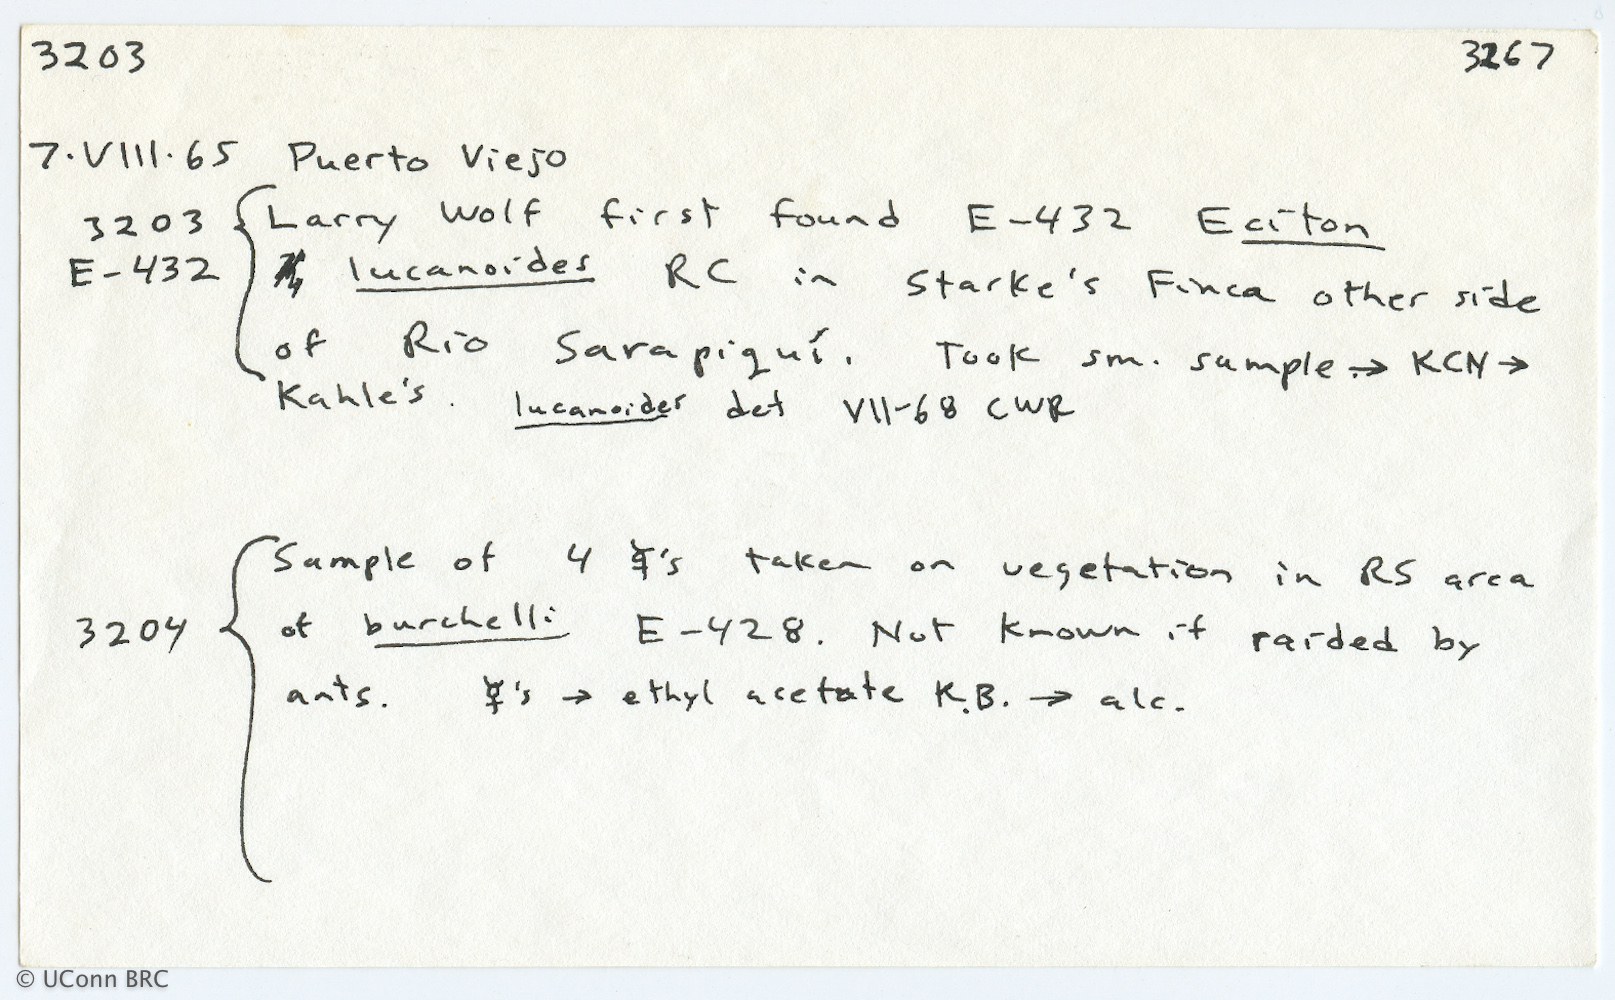 3203 3267
7·VIII·65 Puerto Viejo
3203 Larry Wolf first found E-432 Eciton
E-432 lucanoides RC in Starke's Finca other side
of Rio Sarapiquí. Took sm. sample → KCN →
Kahle's. lucanoides det VII-68 CWR
Sample of 4 ☿'s taken on vegetation in RS area
3204 of burchelli E-428. Not known if raided by
ants. ☿'s → ethyl acetate K.B. → alc.
© UConn BRC